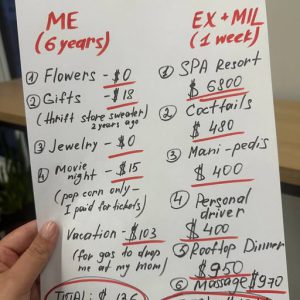 ME
(6 years)
① Flowers - $0
② Gifts - $18
(thrift store sweater)
2 years ago
③ Jewelry - $0
④ Movie
night - $15
(pop corn only -
I paid for tickets)
Vacation - $103
(for gas to drop
me at my mom)
TOTAL: $136
EX + MIL
(1 week)
① SPA Resort
$6800
② Cocttails
$480
③ Mani-pedis
$400
④ Personal
driver
$400
⑤ Rooftop Dinner
$950
⑥ Massage $970